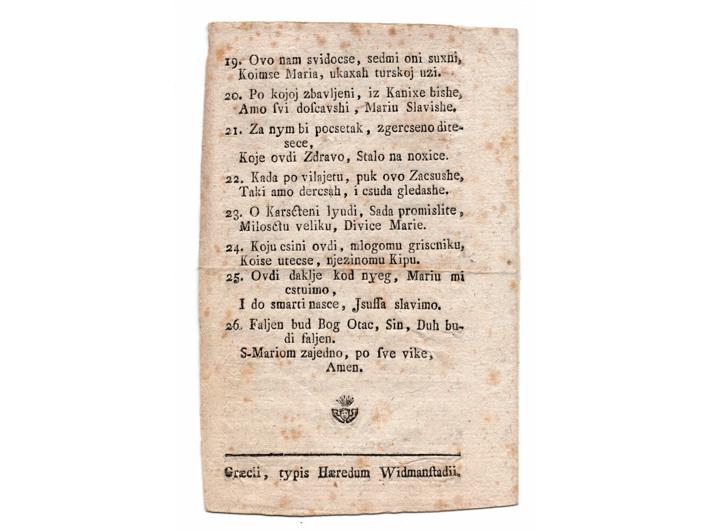 19. Ovo nam svidocse, sedmi oni suxni,
Koimse Maria, ukaxah turskoj uzi.
20. Po kojoj zbavljeni, iz Kanixe bishe,
Amo ſvi doſcavshi, Mariu Slavishe.
21. Za nym bi pocsetak, zgercseno dite-
sece,
Koje ovdi Zdravo, Stalo na noxice.
22. Kada po vilajetu, puk ovo Zacsushe,
Taki amo dercsah, i csuda gledashe.
23. O Karsćteni lyudi, Sada promislite,
Milosćtu veliku, Divice Marie.
24. Koju csini ovdi, mlogomu griscniku,
Koise utecse, njezinomu Kipu.
25. Ovdi daklje kod nyeg, Mariu mi
cstuimo,
I do smarti nasce, Jsuſſa slavimo.
26. Faljen bud Bog Otac, Sin, Duh bu-
di faljen.
S-Mariom zajedno, po ſve vike,
Amen.
Græcii, typis Hæredum Widmanſtadii.